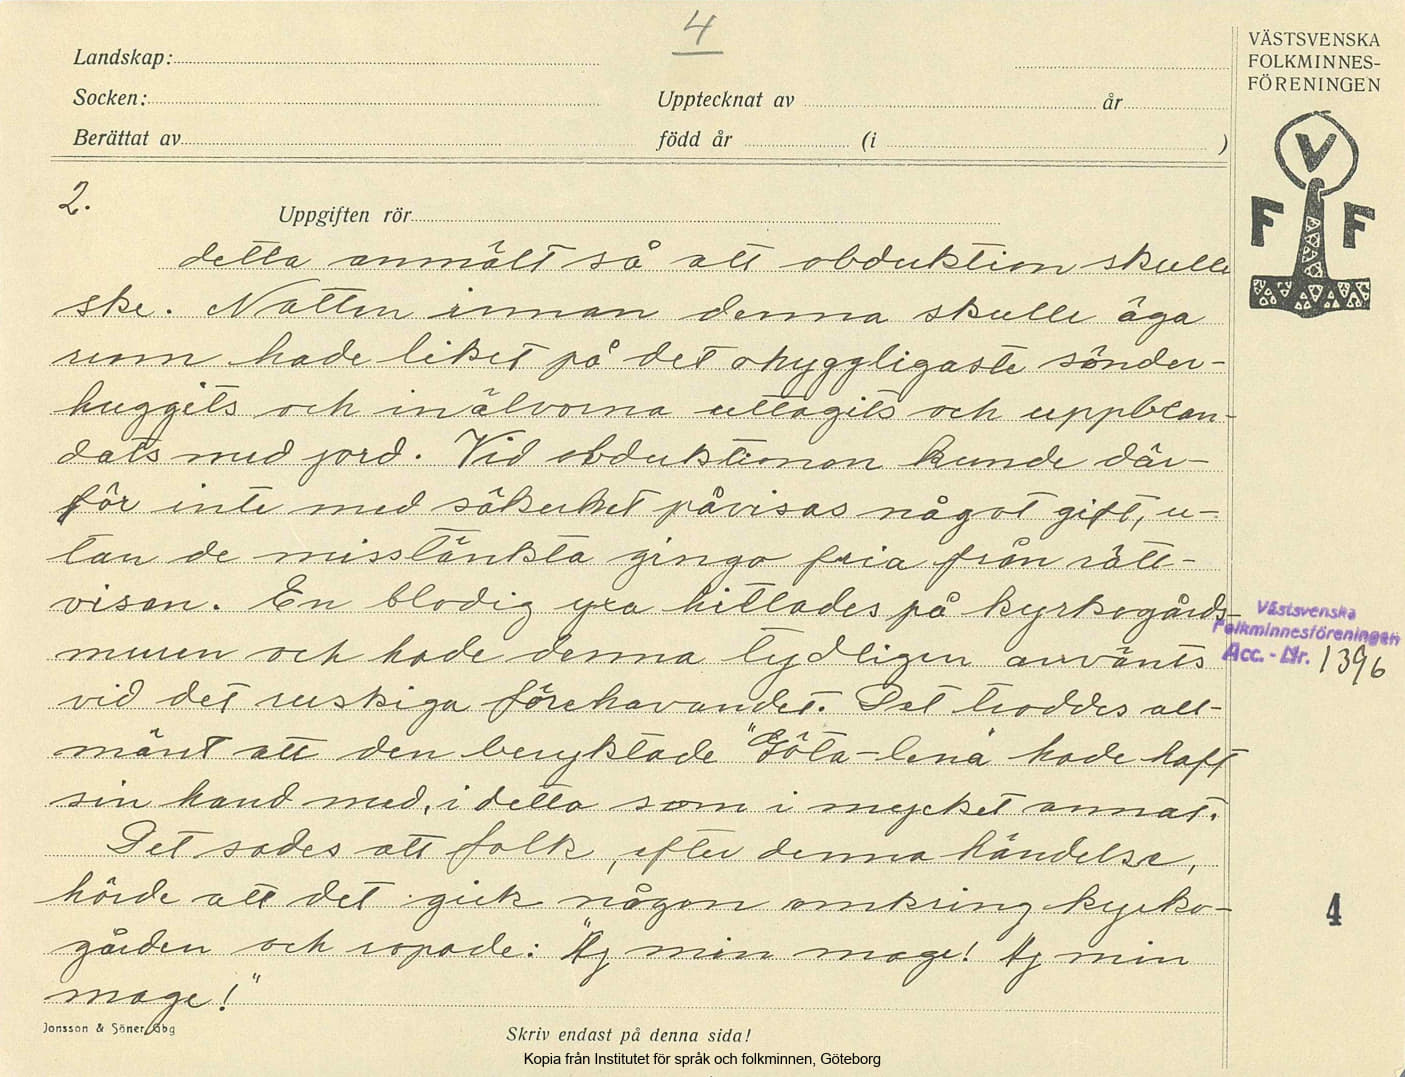 4
Landskap:
Socken:
Upptecknat av år
Berättat av född år (i )
VÄSTSVENSKA
FOLKMINNES-
FÖRENINGEN
V
F F
2.
Uppgiften rör
detta anmält så att obduktion skulle
ske. Natten innan denna skulle äga
rum hade liket på det ohyggligaste sönder-
huggits och inälvorna uttagits och uppblan-
dats med jord. Vid obduktionen kunde där-
för inte med säkerhet påvisas något gift, u-
tan de misstänkta gingo fria från rätt-
visan. En blodig yxa hittades på kyrkogårds-
muren och hade denna tydligen använts
vid det ruskiga förehavandet. Det troddes all-
mänt att den beryktade "Göta-lena" hade haft
sin hand med, i detta som i mycket annat.
Det sades att folk, efter denna händelse,
hörde att det gick någon omkring kyrko-
gården och ropade: "Aj min mage! Aj min
mage!"
Västsvenska
Folkminnesföreningen
Acc. - Nr. 1396
4
Jonsson & Söner, Gbg
Skriv endast på denna sida!
Kopia från Institutet för språk och folkminnen, Göteborg